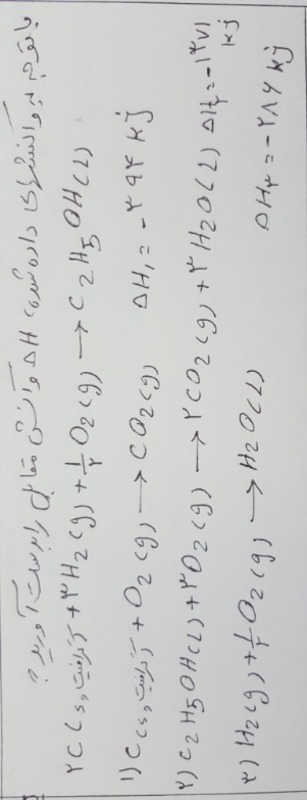 باتوجه به واکنشهای داده شده، ΔH واکنش مقابل را بدست آورید؟
۲C(s, گرافیت) + ۳H2(g) + ۱/۲ O2(g) → C2H5OH(L)
۱) C(s, گرافیت) + O2(g) → CO2(g) ΔH۱ = -۳۹۴ kj
۲) C2H5OH(L) + ۳O2(g) → ۲CO2(g) + ۳H2O(L) ΔH۲ = -۱۳۷۱ kj
۳) H2(g) + ۱/۲ O2(g) → H2O(L) ΔH۳ = -۲۸۶ kj